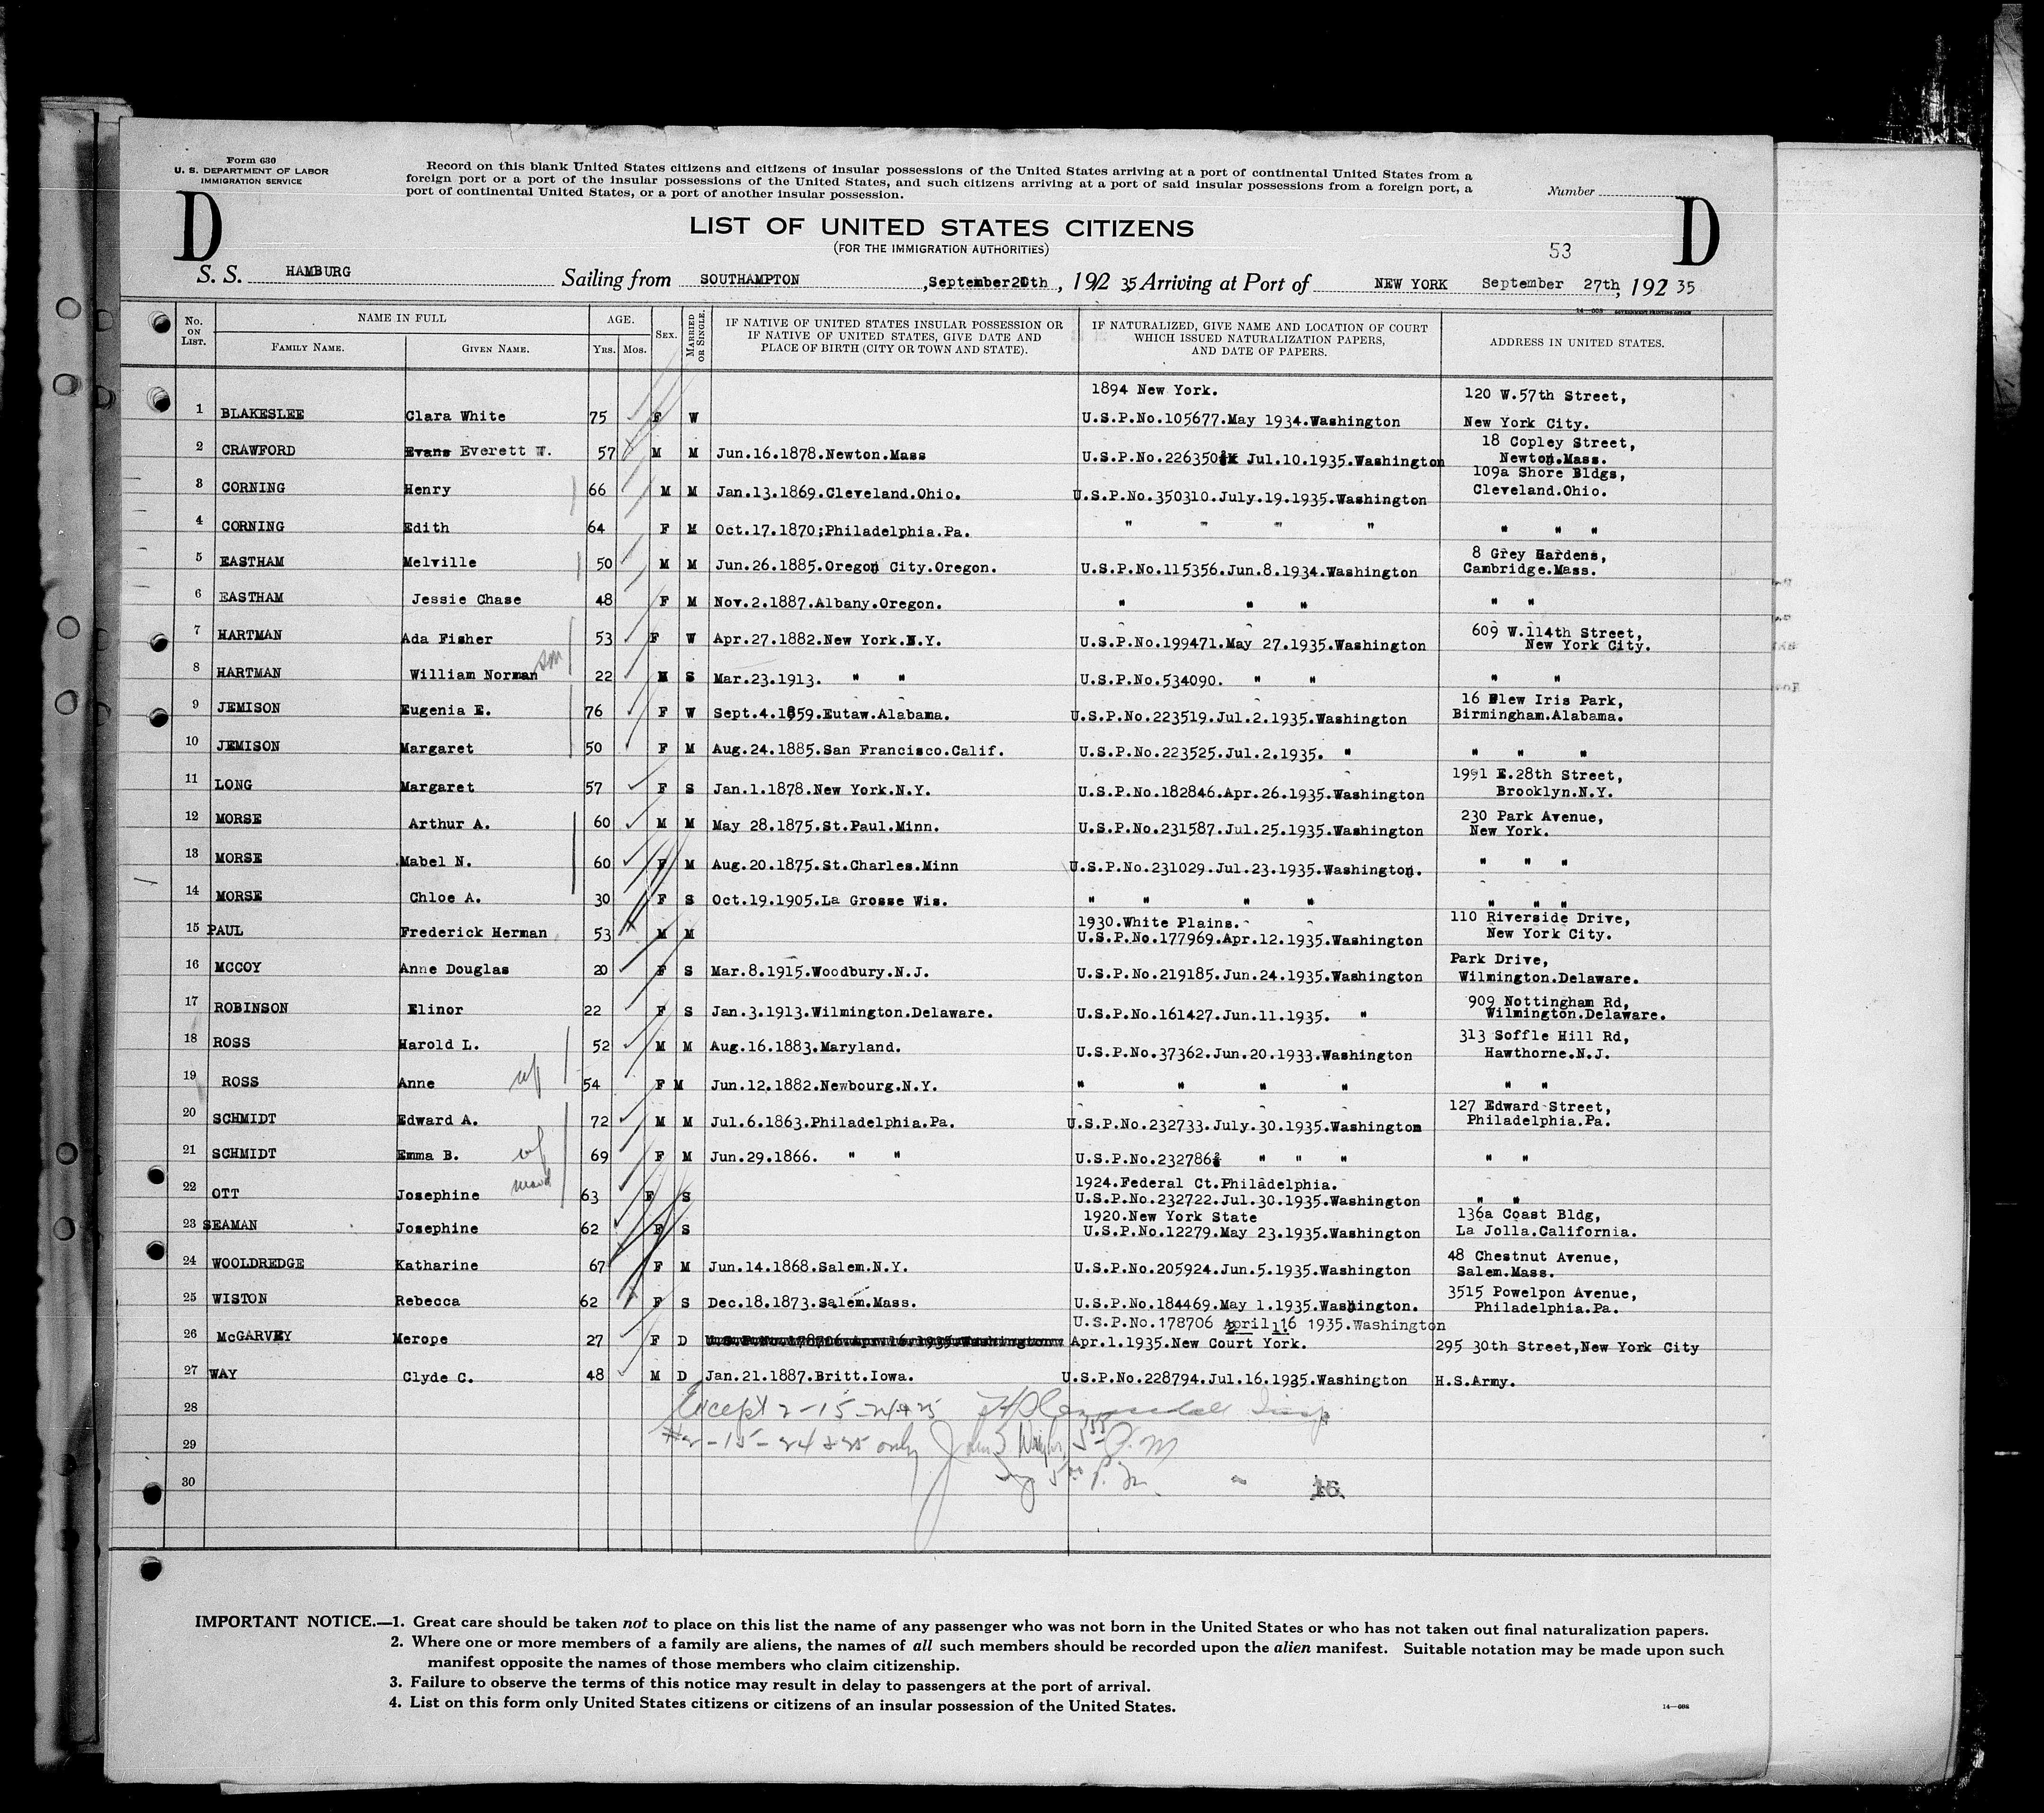 Form 630
U. S. DEPARTMENT OF LABOR
IMMIGRATION SERVICE
Record on this blank United States citizens and citizens of insular possessions of the United States arriving at a port of continental United States from a
foreign port or a port of the insular possessions of the United States, and such citizens arriving at a port of said insular possessions from a foreign port, a
port of continental United States, or a port of another insular possession.
Number
D D
LIST OF UNITED STATES CITIZENS
(FOR THE IMMIGRATION AUTHORITIES)
53
S. S. HAMBURG Sailing from SOUTHAMPTON , September20th , 192 35, Arriving at Port of NEW YORK September 27th, 192 35
No. on List. NAME IN FULL AGE. Sex. Married or Single. IF NATIVE OF UNITED STATES INSULAR POSSESSION OR IF NATIVE OF UNITED STATES, GIVE DATE AND PLACE OF BIRTH (CITY OR TOWN AND STATE). IF NATURALIZED, GIVE NAME AND LOCATION OF COURT WHICH ISSUED NATURALIZATION PAPERS, AND DATE OF PAPERS. ADDRESS IN UNITED STATES.
Family Name. Given Name. Yrs. Mos.
1894 New York. 120 W.57th Street,
1 BLAKESLEE Clara White 75 F W U.S.P.No.105677.May 1934.Washington New York City.
2 CRAWFORD Evans Everett W. 57 M M Jun.16.1878.Newton.Mass U.S.P.No.226350 Jul.10.1935.Washington 18 Copley Street, Newton.Mass.
3 CORNING Henry 66 M M Jan.13.1869.Cleveland.Ohio. U.S.P.No.350310.July.19.1935.Washington 109a Shore Bldgs, Cleveland.Ohio.
4 CORNING Edith 64 F M Oct.17.1870;Philadelphia.Pa. " " " " " " "
5 EASTHAM Melville 50 M M Jun.26.1885.Oregon City.Oregon. U.S.P.No.115356.Jun.8.1934.Washington 8 Grey Gardens, Cambridge.Mass.
6 EASTHAM Jessie Chase 48 F M Nov.2.1887.Albany.Oregon. " " " " "
7 HARTMAN Ada Fisher 53 F W Apr.27.1882.New York.N.Y. U.S.P.No.199471.May 27.1935.Washington 609 W.114th Street, New York City.
8 HARTMAN William Norman son 22 M S Mar.23.1913. " " U.S.P.No.534090. " " " "
9 JEMISON Eugenia E. 76 F W Sept.4.1859.Eutaw.Alabama. U.S.P.No.223519.Jul.2.1935.Washington 16 Dlew Iris Park, Birmingham.Alabama.
10 JEMISON Margaret 50 F M Aug.24.1885.San Francisco.Calif. U.S.P.No.223525.Jul.2.1935. " " " "
11 LONG Margaret 57 F S Jan.1.1878.New York.N.Y. U.S.P.No.182846.Apr.26.1935.Washington 1991 E.28th Street, Brooklyn.N.Y.
12 MORSE Arthur A. 60 M M May 28.1875.St.Paul.Minn. U.S.P.No.231587.Jul.25.1935.Washington 230 Park Avenue, New York.
13 MORSE Mabel N. 60 F M Aug.20.1875.St.Charles.Minn U.S.P.No.231029.Jul.23.1935.Washington. " " "
14 MORSE Chloe A. 30 F S Oct.19.1905.La Grosse Wis. " " " " " " "
1930.White Plains. 110 Riverside Drive,
15 PAUL Frederick Herman 53 M M U.S.P.No.177969.Apr.12.1935.Washington New York City.
16 MCCOY Anne Douglas 20 F S Mar.8.1915.Woodbury.N.J. U.S.P.No.219185.Jun.24.1935.Washington Park Drive, Wilmington.Delaware.
17 ROBINSON Elinor 22 F S Jan.3.1913.Wilmington.Delaware. U.S.P.No.161427.Jun.11.1935. " 909 Nottingham Rd, Wilmington.Delaware.
18 ROSS Harold L. 52 M M Aug.16.1883.Maryland. U.S.P.No.37362.Jun.20.1933.Washington 313 Soffle Hill Rd, Hawthorne.N.J.
19 ROSS Anne wf 54 F M Jun.12.1882.Newbourg.N.Y. " " " " " "
20 SCHMIDT Edward A. 72 M M Jul.6.1863.Philadelphia.Pa. U.S.P.No.232733.July.30.1935.Washington 127 Edward Street, Philadelphia.Pa.
21 SCHMIDT Emma B. wf 69 F M Jun.29.1866. " " U.S.P.No.232786 " " " " "
1924.Federal Ct.Philadelphia.
22 OTT Josephine maid 63 F S U.S.P.No.232722.Jul.30.1935.Washington " "
1920.New York State 136a Coast Bldg,
23 SEAMAN Josephine 62 F S U.S.P.No.12279.May 23.1935.Washington La Jolla.California.
24 WOOLDREDGE Katharine 67 F M Jun.14.1868.Salem.N.Y. U.S.P.No.205924.Jun.5.1935.Washington 48 Chestnut Avenue, Salem.Mass.
25 WISTON Rebecca 62 F S Dec.18.1873.Salem.Mass. U.S.P.No.184469.May 1.1935.Washington. 3515 Powelpon Avenue, Philadelphia.Pa.
U.S.P.No.178706 April 16 1935.Washington
26 McGARVEY Merope 27 F D U.S.P.No.178706.Apr.16.1935.Washington Apr.1.1935.New Court York. 295 30th Street,New York City
27 WAY Clyde C. 48 M D Jan.21.1887.Britt.Iowa. U.S.P.No.228794.Jul.16.1935.Washington H.S.Army.
28 Except 2-15-24+25
29 #2-15-24 & 25 only John S P.M
30 P.M. 16
IMPORTANT NOTICE.—1. Great care should be taken not to place on this list the name of any passenger who was not born in the United States or who has not taken out final naturalization papers.
2. Where one or more members of a family are aliens, the names of all such members should be recorded upon the alien manifest. Suitable notation may be made upon such
manifest opposite the names of those members who claim citizenship.
3. Failure to observe the terms of this notice may result in delay to passengers at the port of arrival.
4. List on this form only United States citizens or citizens of an insular possession of the United States.